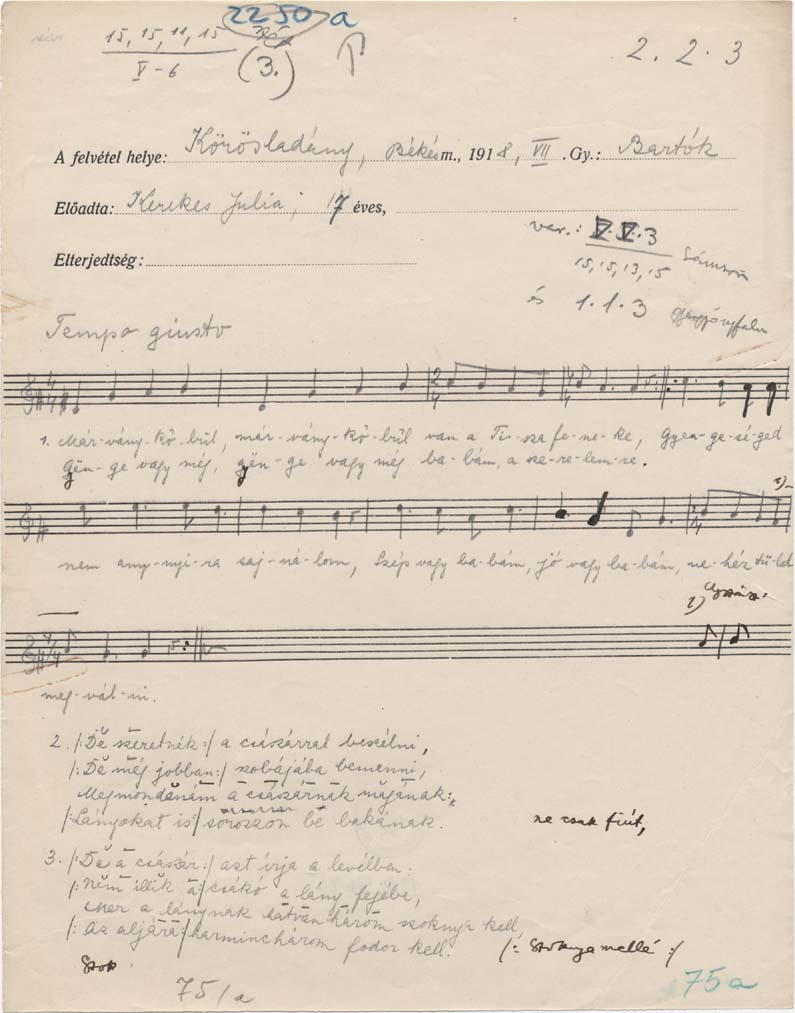 2250 a
15, 15, 11, 15
V-6
(3.)
2. 2. 3
A felvétel helye: Körösladány, Békés m., 1918, VII. Gy.: Bartók
Előadta: Kerekes Julia; 17 éves,
Elterjedtség:
var.: V. V. 3
15, 15, 13, 15
és 1. 1. 3
Tempo giusto
1. Már-vány-kő-bül, már-vány-kő-bül van a Ti-sza fe-ne-ke, Gyen-ge-sé-ged
gyën-ge vagy még, gyën-ge vagy még ba-bám, a sze-re-lem-re.
1)
nem any-nyi-ra saj-ná-lom, Szép vagy ba-bám, jó vagy ba-bám, ne-héz tü-led
1)
meg-vál-ni.
2. /: De szeretnék :/ a császárral beszélni,
/: De még jobban :/ szobájába bemenni,
Megmondanám a császárnak magának:
/: Lányokat is :/ sorozzon bé bakának. ne csak fiút,
3. /: De a császár :/ azt írja a levélben:
/: Nëm illik a :/ csákó a lány fejébe,
Mer a lánynak hatvanhárom szoknya kell,
/: Az aljára :/ harminchárom fodor kell. /: Szoknya mellé :/
Szok
75/a
75a